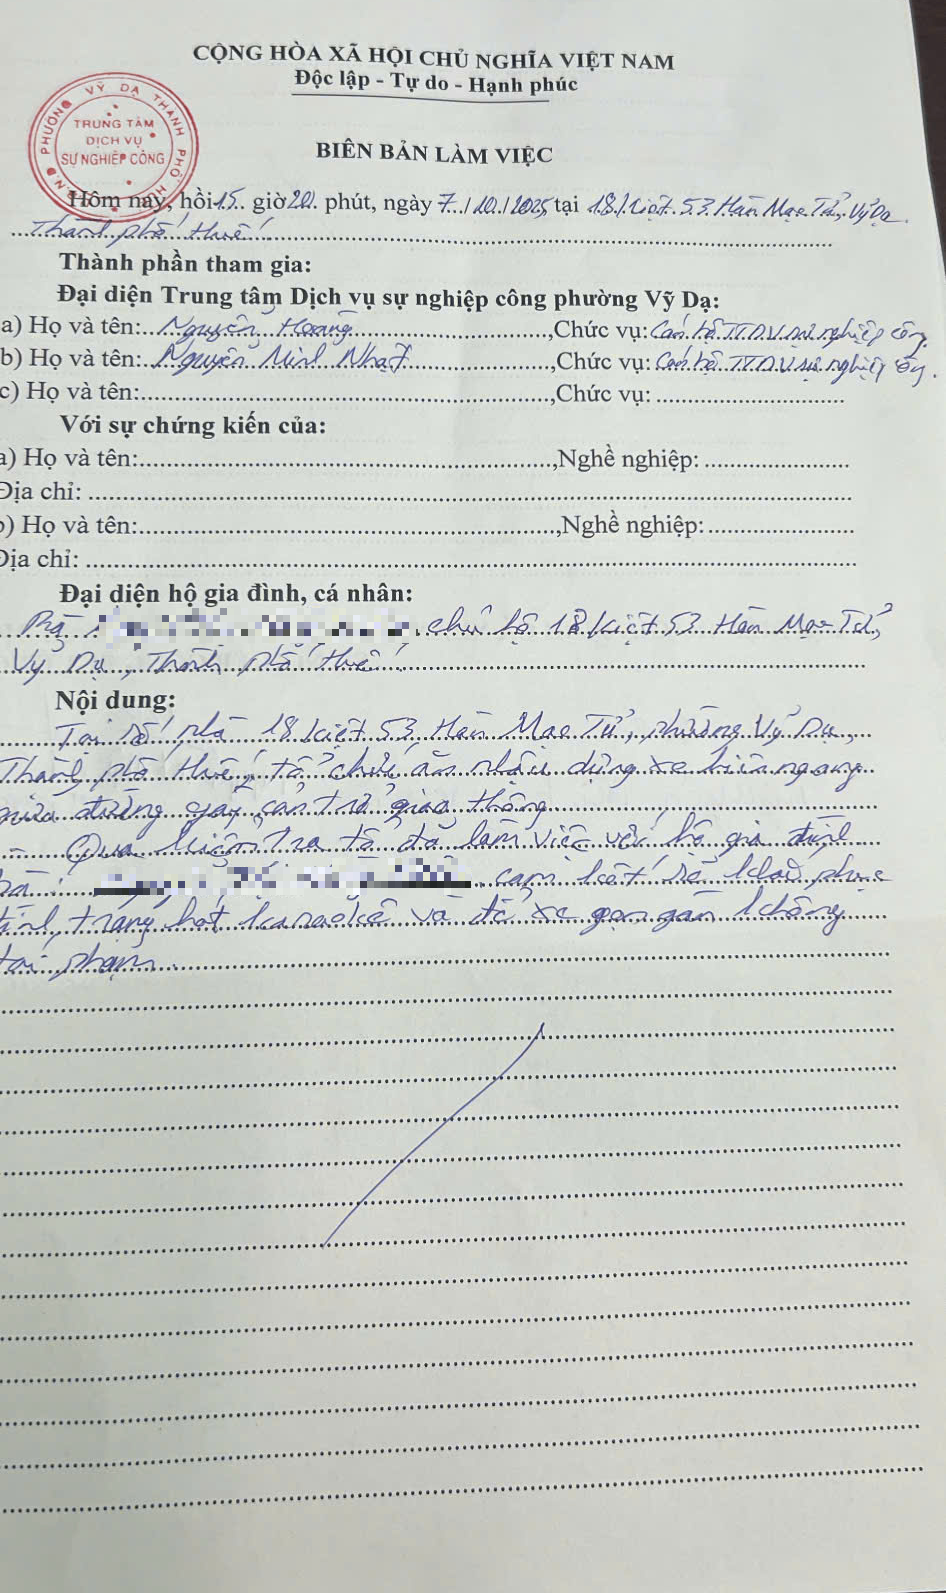 CỘNG HÒA XÃ HỘI CHỦ NGHĨA VIỆT NAM
Độc lập - Tự do - Hạnh phúc
PHƯỜNG VỸ DẠ THÀNH PHỐ
TRUNG TÂM
DỊCH VỤ
SỰ NGHIỆP CÔNG
BIÊN BẢN LÀM VIỆC
Hôm nay, hồi 15 giờ 20 phút, ngày 7/10/2025 tại 18/kiệt 53 Hàn Mạc Tử, Vỹ Dạ
Thành phố Huế
Thành phần tham gia:
Đại diện Trung tâm Dịch vụ sự nghiệp công phường Vỹ Dạ:
a) Họ và tên: Nguyễn Hoàng, Chức vụ: Cán bộ TTDV sự nghiệp công
b) Họ và tên: Nguyễn Minh Nhật, Chức vụ: Cán bộ TTDV sự nghiệp công.
c) Họ và tên:, Chức vụ:
Với sự chứng kiến của:
a) Họ và tên:, Nghề nghiệp:
Địa chỉ:
b) Họ và tên:, Nghề nghiệp:
Địa chỉ:
Đại diện hộ gia đình, cá nhân:
Bà chủ hộ 18/kiệt 53 Hàn Mạc Tử,
Vỹ Dạ, Thành phố Huế.
Nội dung:
Tại số nhà 18/kiệt 53, Hàn Mạc Tử, phường Vỹ Dạ,
Thành phố Huế, tổ chức ăn nhậu dựng xe hiên ngang
giữa đường gây cản trở giao thông
Qua kiểm tra tổ đã làm việc với hộ gia đình
bà: cam kết sẽ khắc phục
tình trạng hát karaokê và để xe gọn gàn không
tái phạm.